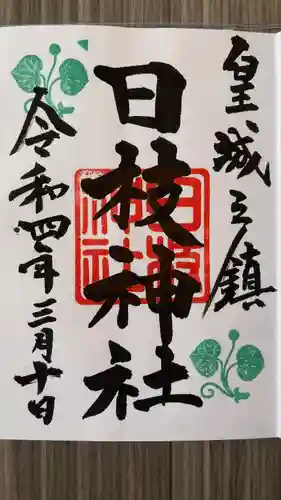 皇城之鎮
日枝神社
令和四年三月十日
日枝神社